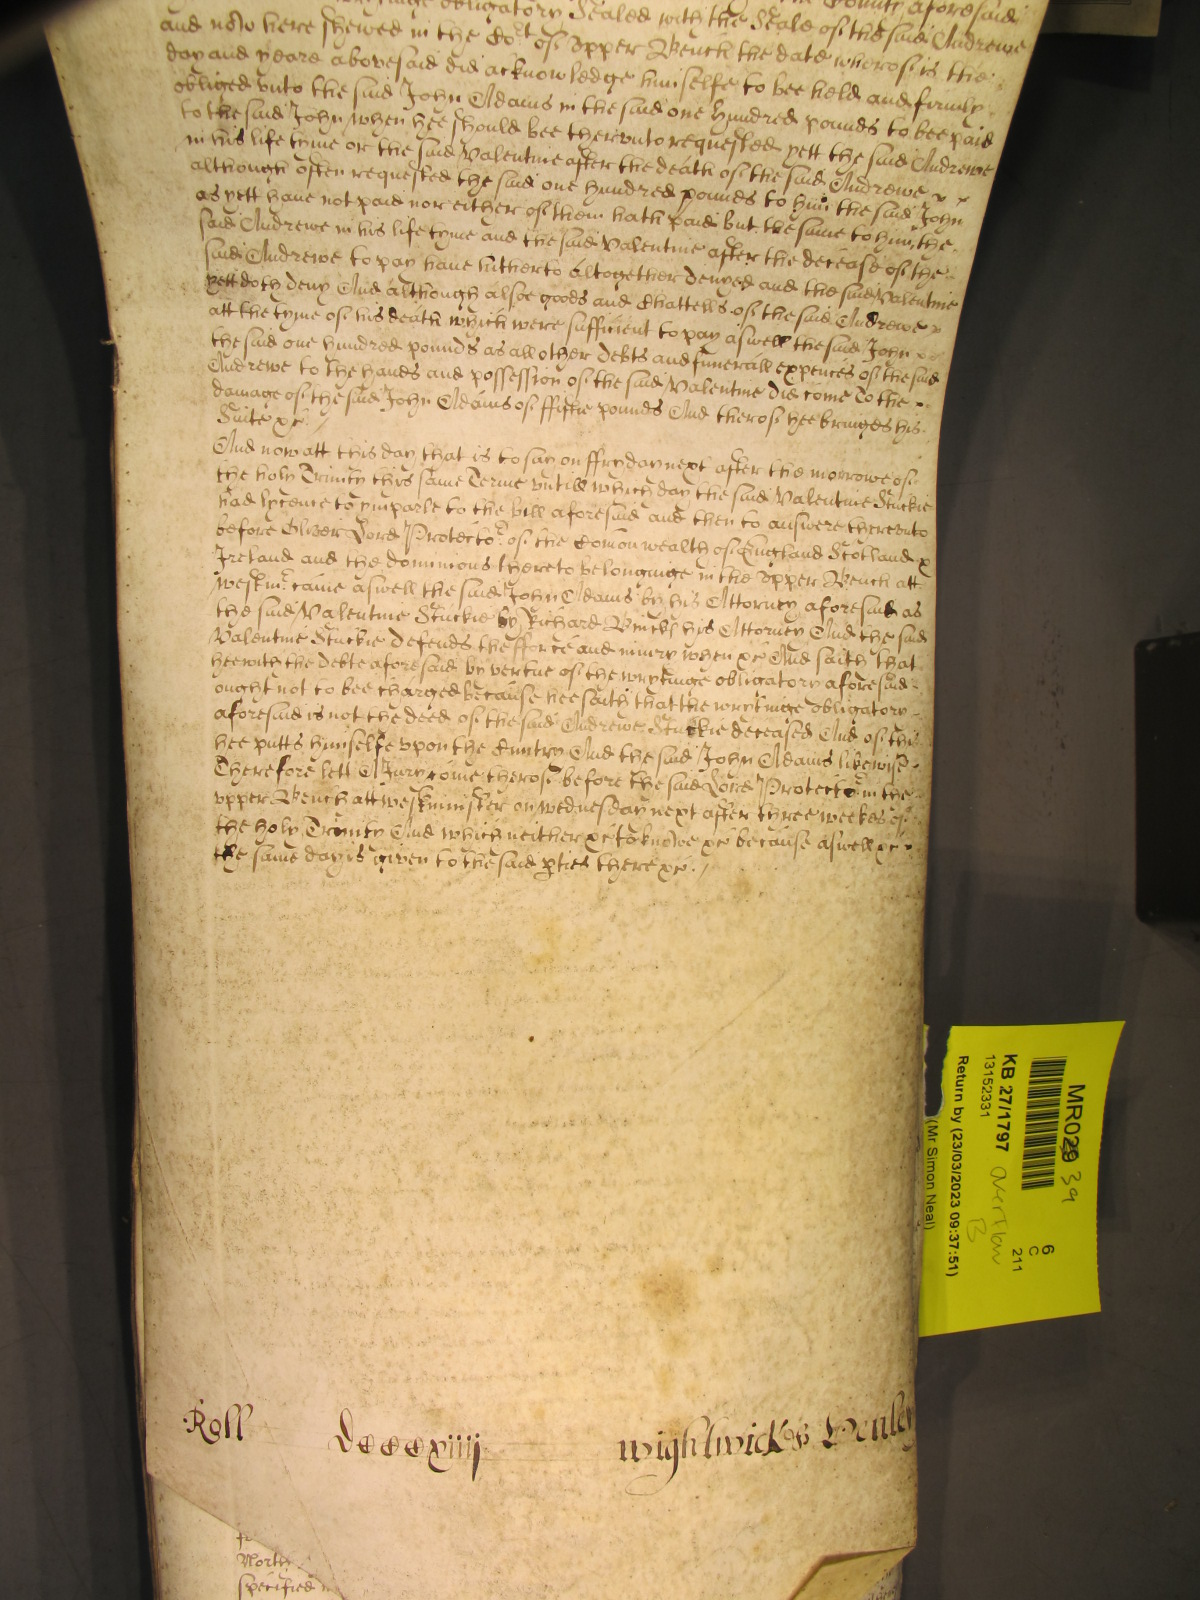 obligatory Sealed with the Seale of the said Andrewe
and now here shewed in the Cort of Vpper Bench the date whereof is the
day and yeare abovesaid did acknowledge himselfe to bee held and firmly
obliged vnto the said John Adams in the said one hundred pounds to bee paid
to the said John when hee should bee therevnto requested yett the said Andrewe
in his life tyme or the said Valentine after the death of the said Andrewe
although often requested the said one hundred pounds to him the said John
as yett haue not paid nor either of them hath paid but the same to him the
said Andrewe in his life tyme and the said Valentine after the decease of the
said Andrewe to pay haue hitherto altogether denyed and the said Valentine
yett doth deny And although alsoe goods and Chattells of the said Andrewe
att the tyme of his death which were sufficient to pay aswell the said John
the said one hundred pounds as all other debts and funerall expences of the said
Andrewe to the hands and possession of the said Valentine did come To the
damage of the said John Adams of ffiftie pounds And therof hee bringes his
Suite &c
And now att this day that is to say on ffryday next after the morrowe of
the holy Trinity this same Terme vntill which day the said Valentine Stuckie
had lycence to imparle to the bill aforesaid and then to answere therevnto
before Oliver Lord Protector of the Comon wealth of England Scotland &
Ireland and the dominions thereto belonginge in the Vpper Bench att
Westmr came aswell the said John Adams by his Attorney aforesaid as
the said Valentine Stuckie by Richard his Attorney And the said
Valentine Stuckie defends the fforce and iniury when &c And saith that
hee with the debte aforesaid by vertue of the wrytinge obligatory aforesaid
ought not to bee charged because hee saith that the wrytinge obligatory
aforesaid is not the deed of the said Andrewe Stuckie deceased And of this
hee putts himselfe vpon the Cuntry And the said John Adams likewise
Therefore lett A Jury come therof before the said Lord Protector in the
vpper Bench att westminster on wednesday next after three weekes of
the holy Trinity And which neither &c to knowe &c because aswell &c
the same day is given to the said pties there &c
Roll Dccccxiiij Wightwicke & Henley
North
specified
MR029 39
KB 27/1797
13152331
overflow
B
6
C
211
Return by (23/03/2023 09:37:51)
(Mr Simon Neal)